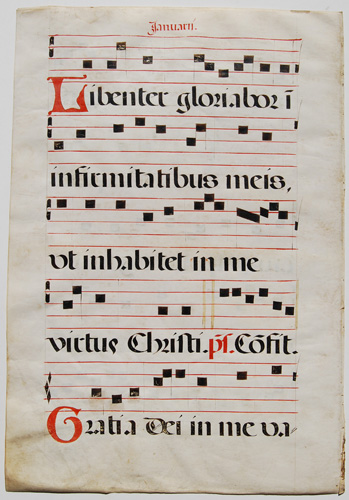 Januarii.
Libenter gloriabor ī
infirmitatibus meis,
vt inhabitet in me
virtus Christi. ps. Cōfit.
Gratia Dei in me va